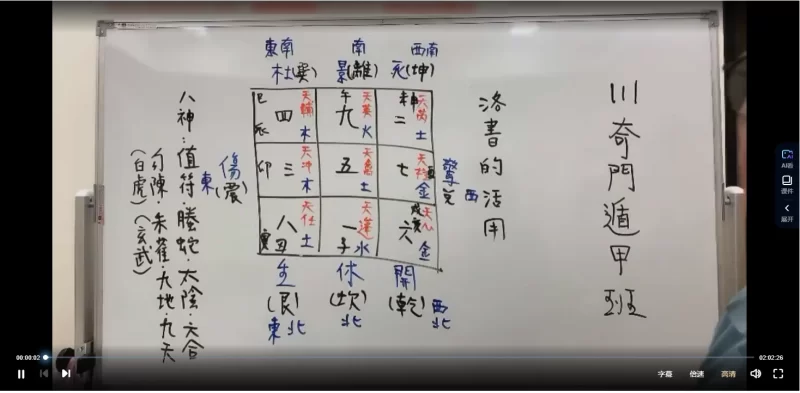 川奇門遁甲班
洛書的活用
東南 南 西南
杜(巽) 景(離) 死(坤)
巳 四 天輔 木 辰
午 九 天英 火
未申 二 天芮 土
傷(震) 東
卯 三 天冲 木
五 天禽 土
七 天柱 酉 金
驚 兌 西
寅 八 丑 天任 土
一 子 天蓬 水
戌亥 六 天心 金
生 休 開
(艮) (坎) (乾) 西北
東北 北
八神:值符·螣蛇·太陰·六合
勾陳·朱雀·九地·九天
(白虎)(玄武)
AI看
课件
展开
00:00:02
02:02:26
字幕 倍速 高清